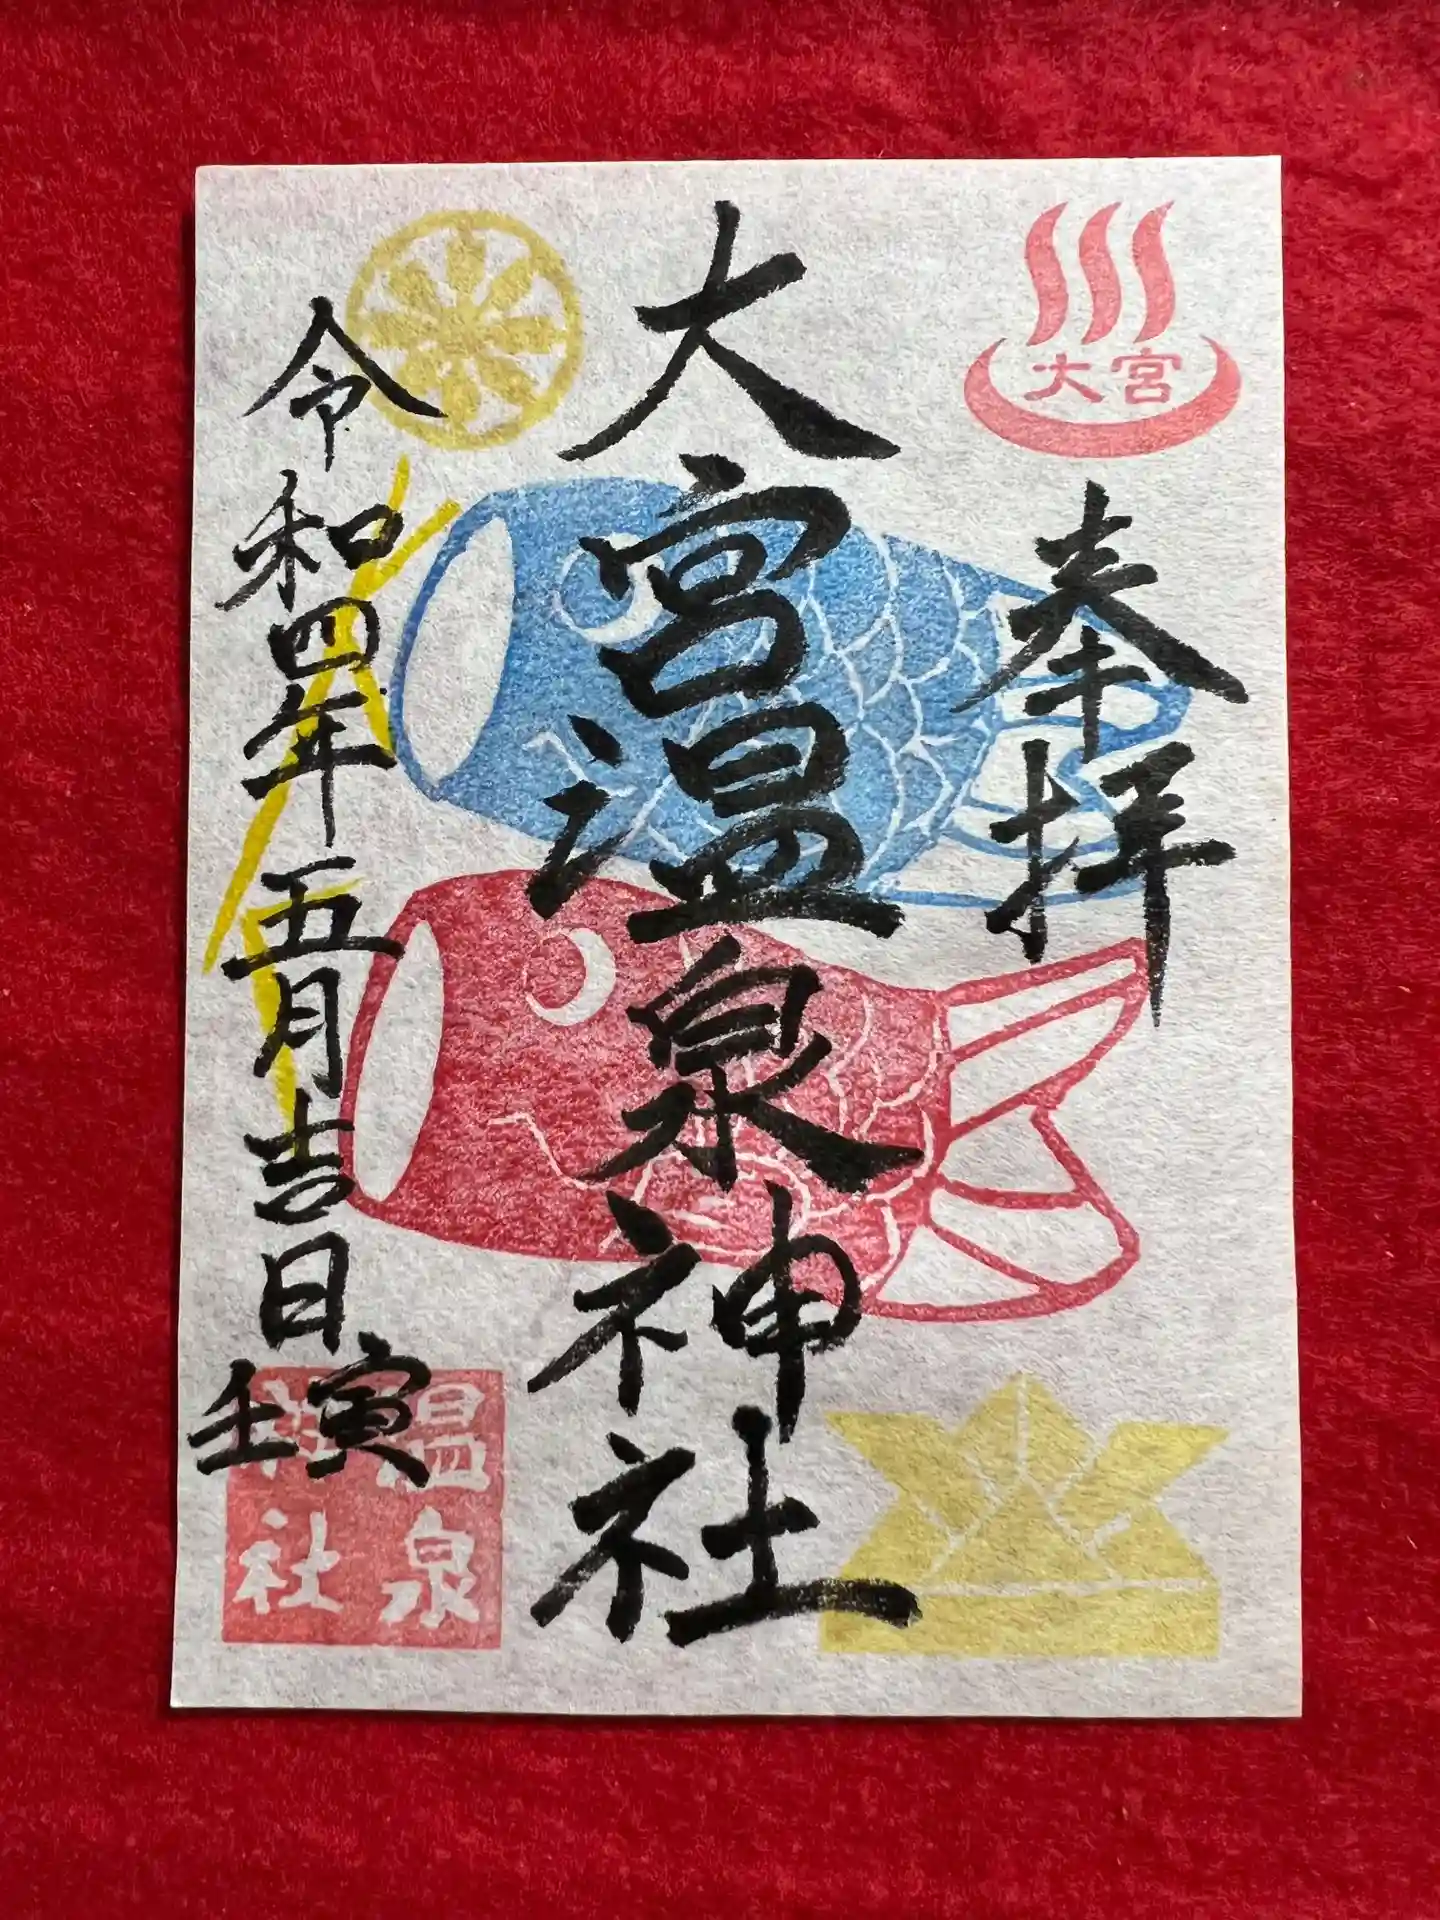 大宮
奉拝
大宮温泉神社
令和四年五月吉日
壬寅
温泉
神社